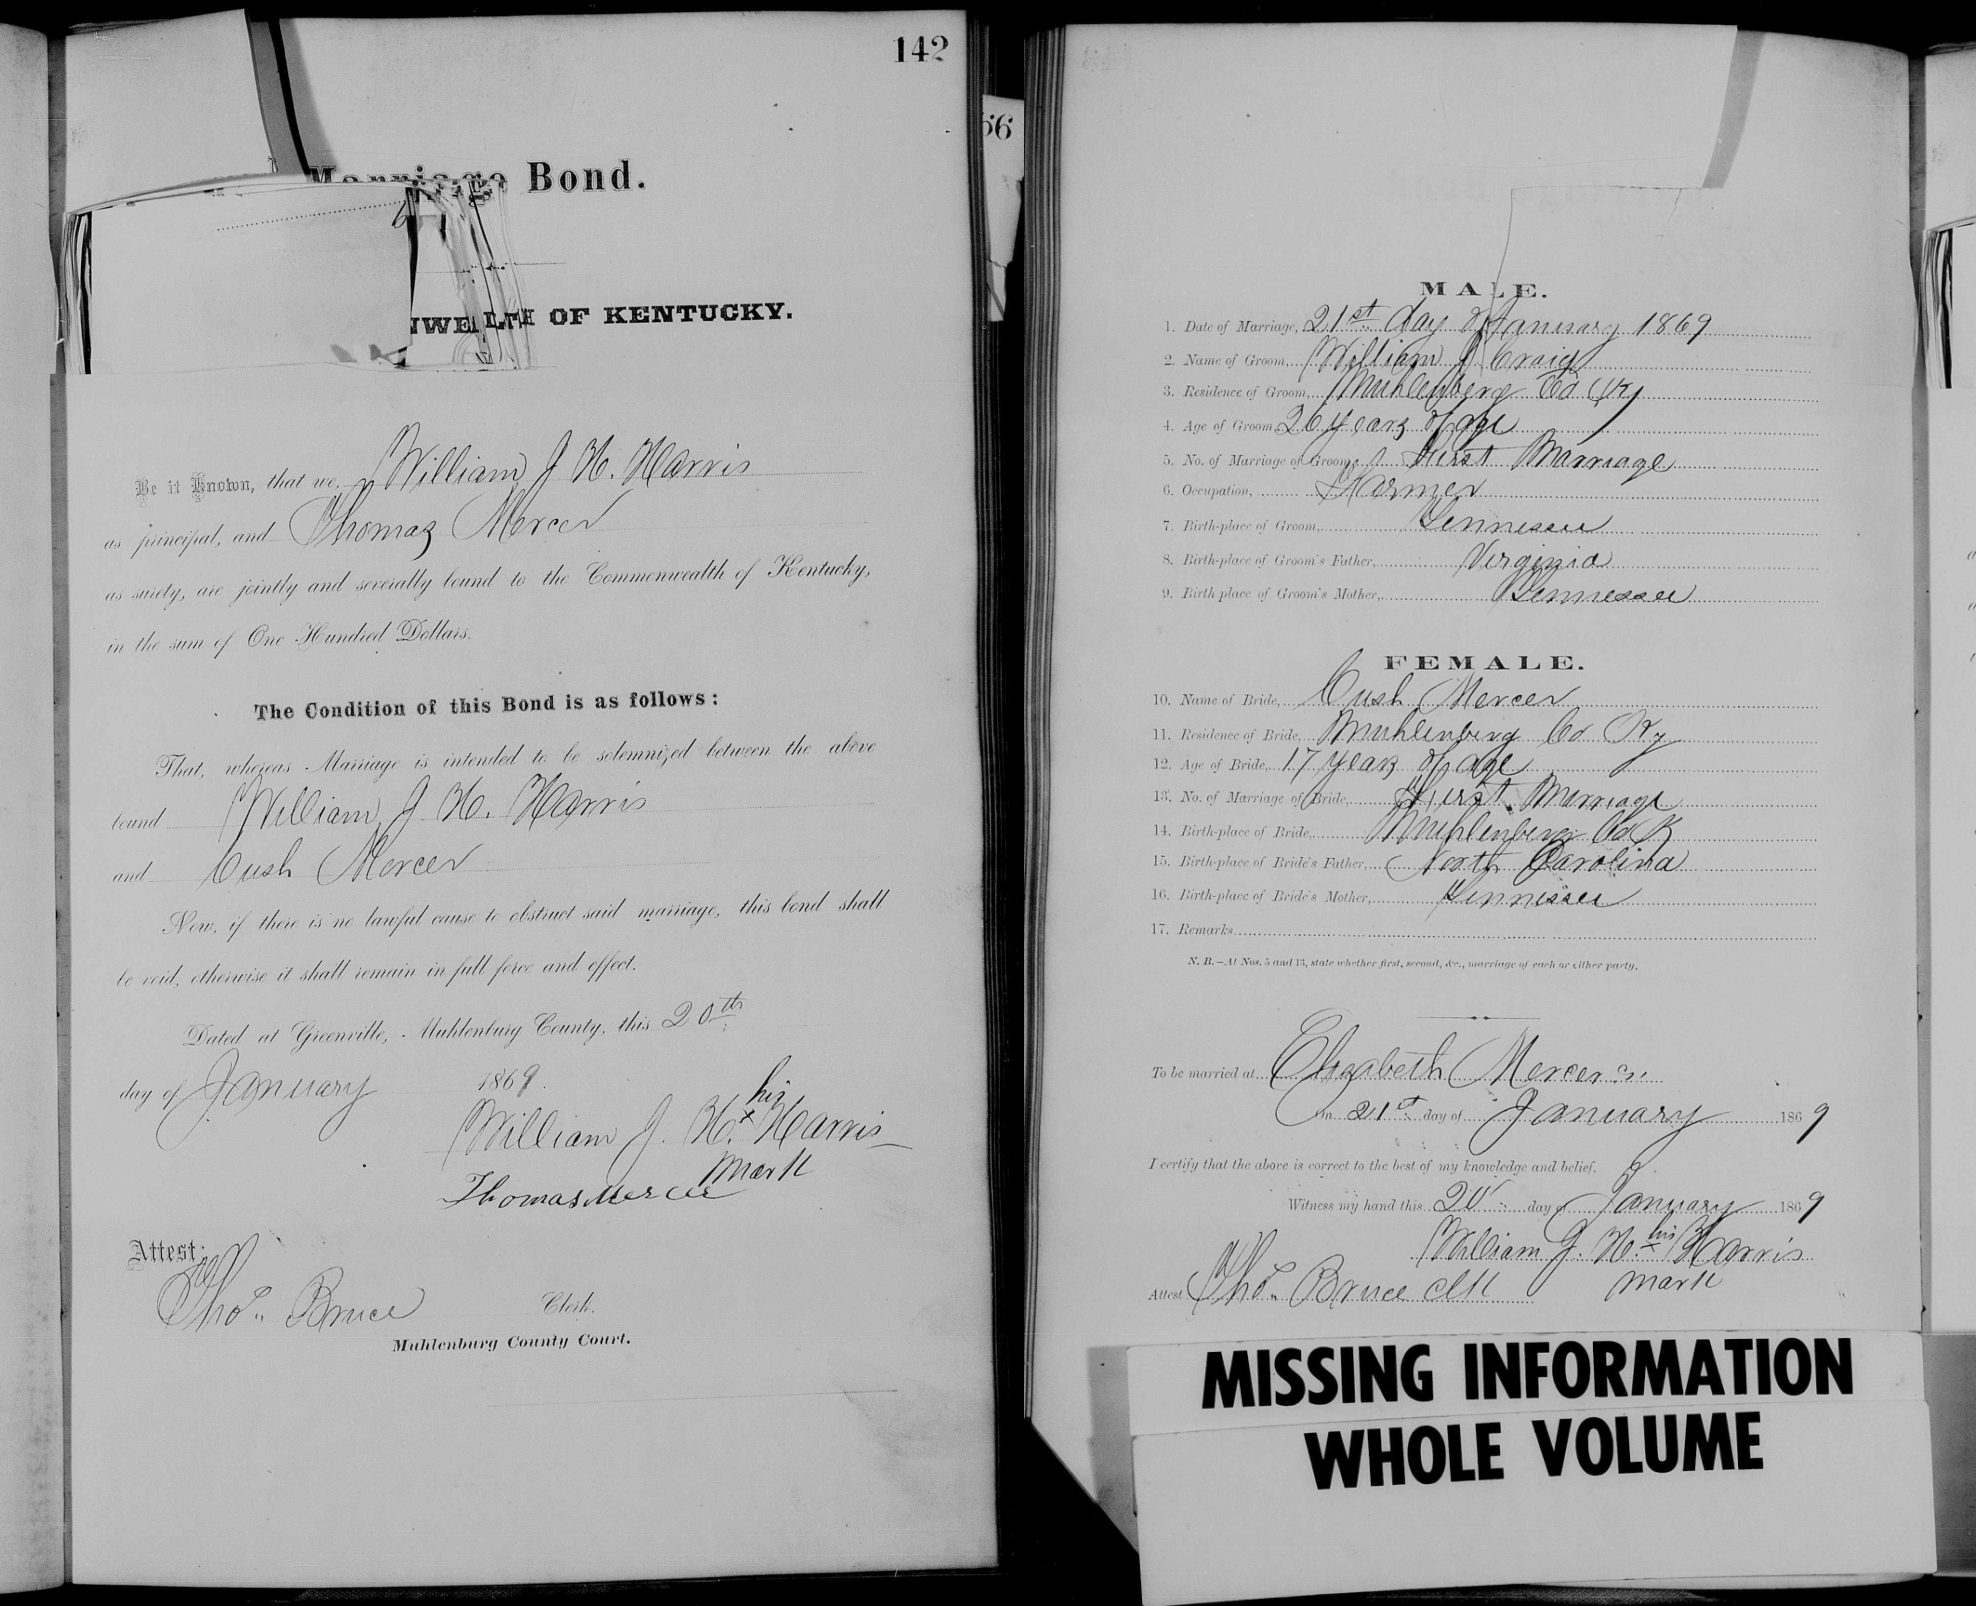 142
Marriage Bond.
56
NWEALTH OF KENTUCKY.
Be it Known, that we, William J H. Harris
as principal, and Thomas Mercer
as surety, are jointly and severally bound to the Commonwealth of Kentucky,
in the sum of One Hundred Dollars.
The Condition of this Bond is as follows:
That, whereas Marriage is intended to be solemnized between the above
bound William J H. Harris
and Cush Mercer
Now, if there is no lawful cause to obstruct said marriage, this bond shall
be void, otherwise it shall remain in full force and effect.
Dated at Greenville, Muhlenburg County, this 20th
day of January 1869.
his
William J. H. x Harris
mark
Thomas Mercer
Attest:
Thos. Bruce Clerk.
Muhlenburg County Court.
MALE.
1. Date of Marriage, 21st day of January 1869
2. Name of Groom, William J Craig
3. Residence of Groom, Muhlenberg Co Ky
4. Age of Groom, 26 years of age
5. No. of Marriage of Groom, First Marriage
6. Occupation, Farmer
7. Birth-place of Groom, Tennessee
8. Birth-place of Groom's Father, Virginia
9. Birth place of Groom's Mother, Tennessee
FEMALE.
10. Name of Bride, Cush Mercer
11. Residence of Bride, Muhlenberg Co Ky
12. Age of Bride, 17 years of age
13. No. of Marriage of Bride, First Marriage
14. Birth-place of Bride, Muhlenberg Co K
15. Birth-place of Bride's Father, North Carolina
16. Birth-place of Bride's Mother, Tennessee
17. Remarks
N. B.—At Nos. 5 and 13, state whether first, second, &c., marriage of each or either party.
To be married at Elizabeth Mercers
on 21st day of January 1869
I certify that the above is correct to the best of my knowledge and belief.
Witness my hand this 20 day of January 1869
his
William J. H. x Harris
mark
Attest Thos. Bruce clk
MISSING INFORMATION
WHOLE VOLUME